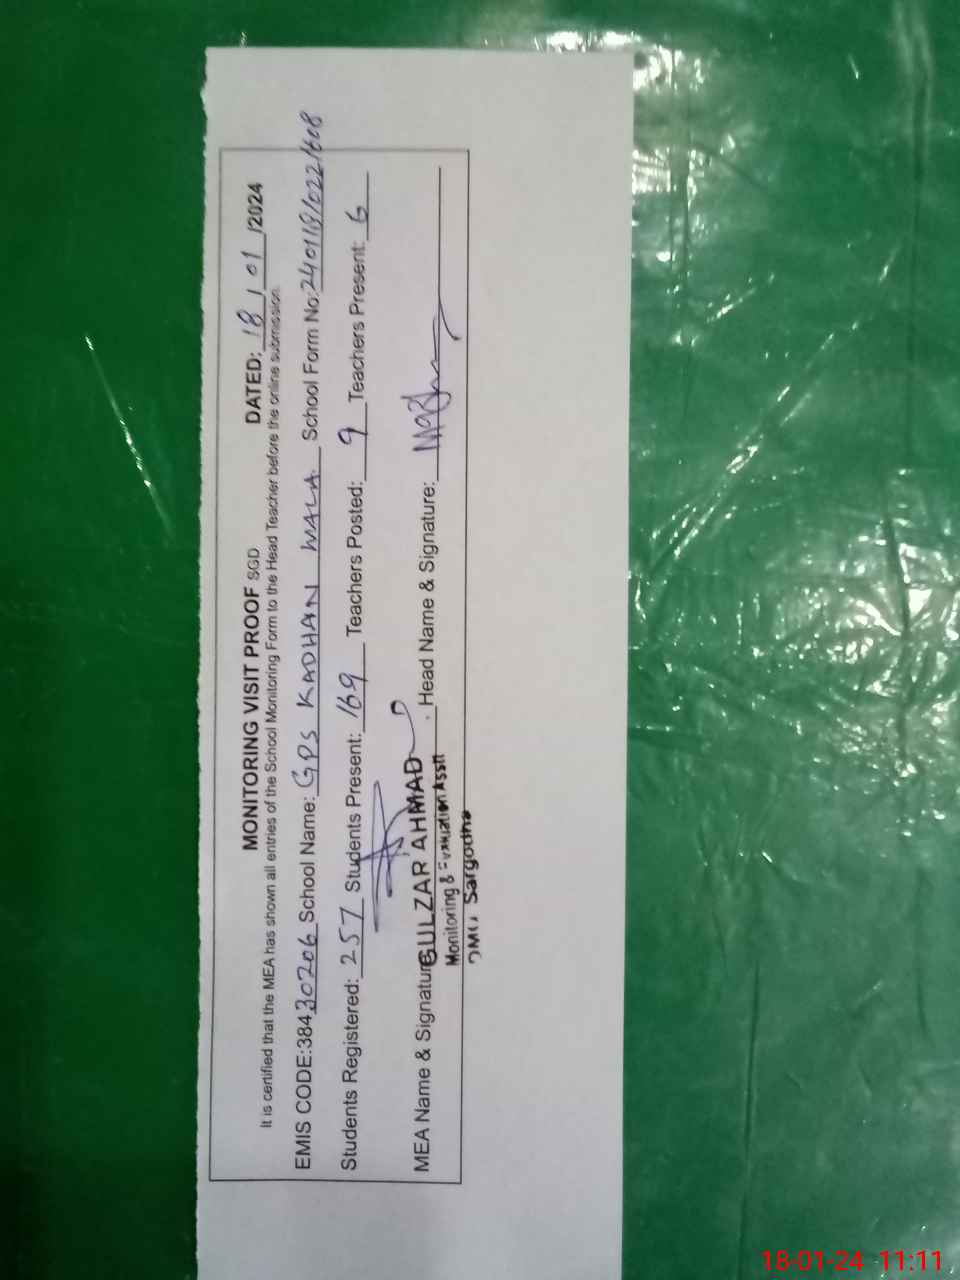 MONITORING VISIT PROOF SGD DATED: 18 / 01 /2024
It is certified that the MEA has shown all entries of the School Monitoring Form to the Head Teacher before the online submission.
EMIS CODE:38430206 School Name: GPS KADHAN WALA School Form No:
Students Registered: 257 Students Present: 169 Teachers Posted: 9 Teachers Present: 6
MEA Name & Signature GULZAR AHMAD Head Name & Signature:
Monitoring & Evaluation Asstt
DMO Sargodha
18-01-24 11:11